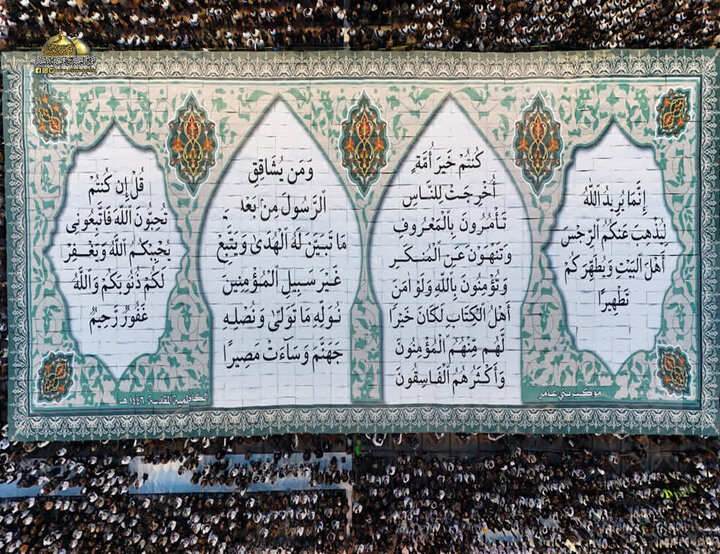 إِنَّمَا يُرِيدُ اللَّهُ
لِيُذْهِبَ عَنْكُمُ الرِّجْسَ
أَهْلَ الْبَيْتِ وَيُطَهِّرَكُمْ
تَطْهِيرًا
كُنْتُمْ خَيْرَ أُمَّةٍ
أُخْرِجَتْ لِلنَّاسِ
تَأْمُرُونَ بِالْمَعْرُوفِ
وَتَنْهَوْنَ عَنِ الْمُنْكَرِ
وَتُؤْمِنُونَ بِاللَّهِ وَلَوْ آمَنَ
أَهْلُ الْكِتَابِ لَكَانَ خَيْرًا
لَهُمْ مِنْهُمُ الْمُؤْمِنُونَ
وَأَكْثَرُهُمُ الْفَاسِقُونَ
وَمَنْ يُشَاقِقِ
الرَّسُولَ مِنْ بَعْدِ
مَا تَبَيَّنَ لَهُ الْهُدَىٰ وَيَتَّبِعْ
غَيْرَ سَبِيلِ الْمُؤْمِنِينَ
نُوَلِّهِ مَا تَوَلَّىٰ وَنُصْلِهِ
جَهَنَّمَ وَسَاءَتْ مَصِيرًا
قُلْ إِنْ كُنْتُمْ
تُحِبُّونَ اللَّهَ فَاتَّبِعُونِي
يُحْبِبْكُمُ اللَّهُ وَيَغْفِرْ
لَكُمْ ذُنُوبَكُمْ وَاللَّهُ
غَفُورٌ رَحِيمٌ
موكب بني عامر
الكاظمية المقدسة ١٤٤٦هـ